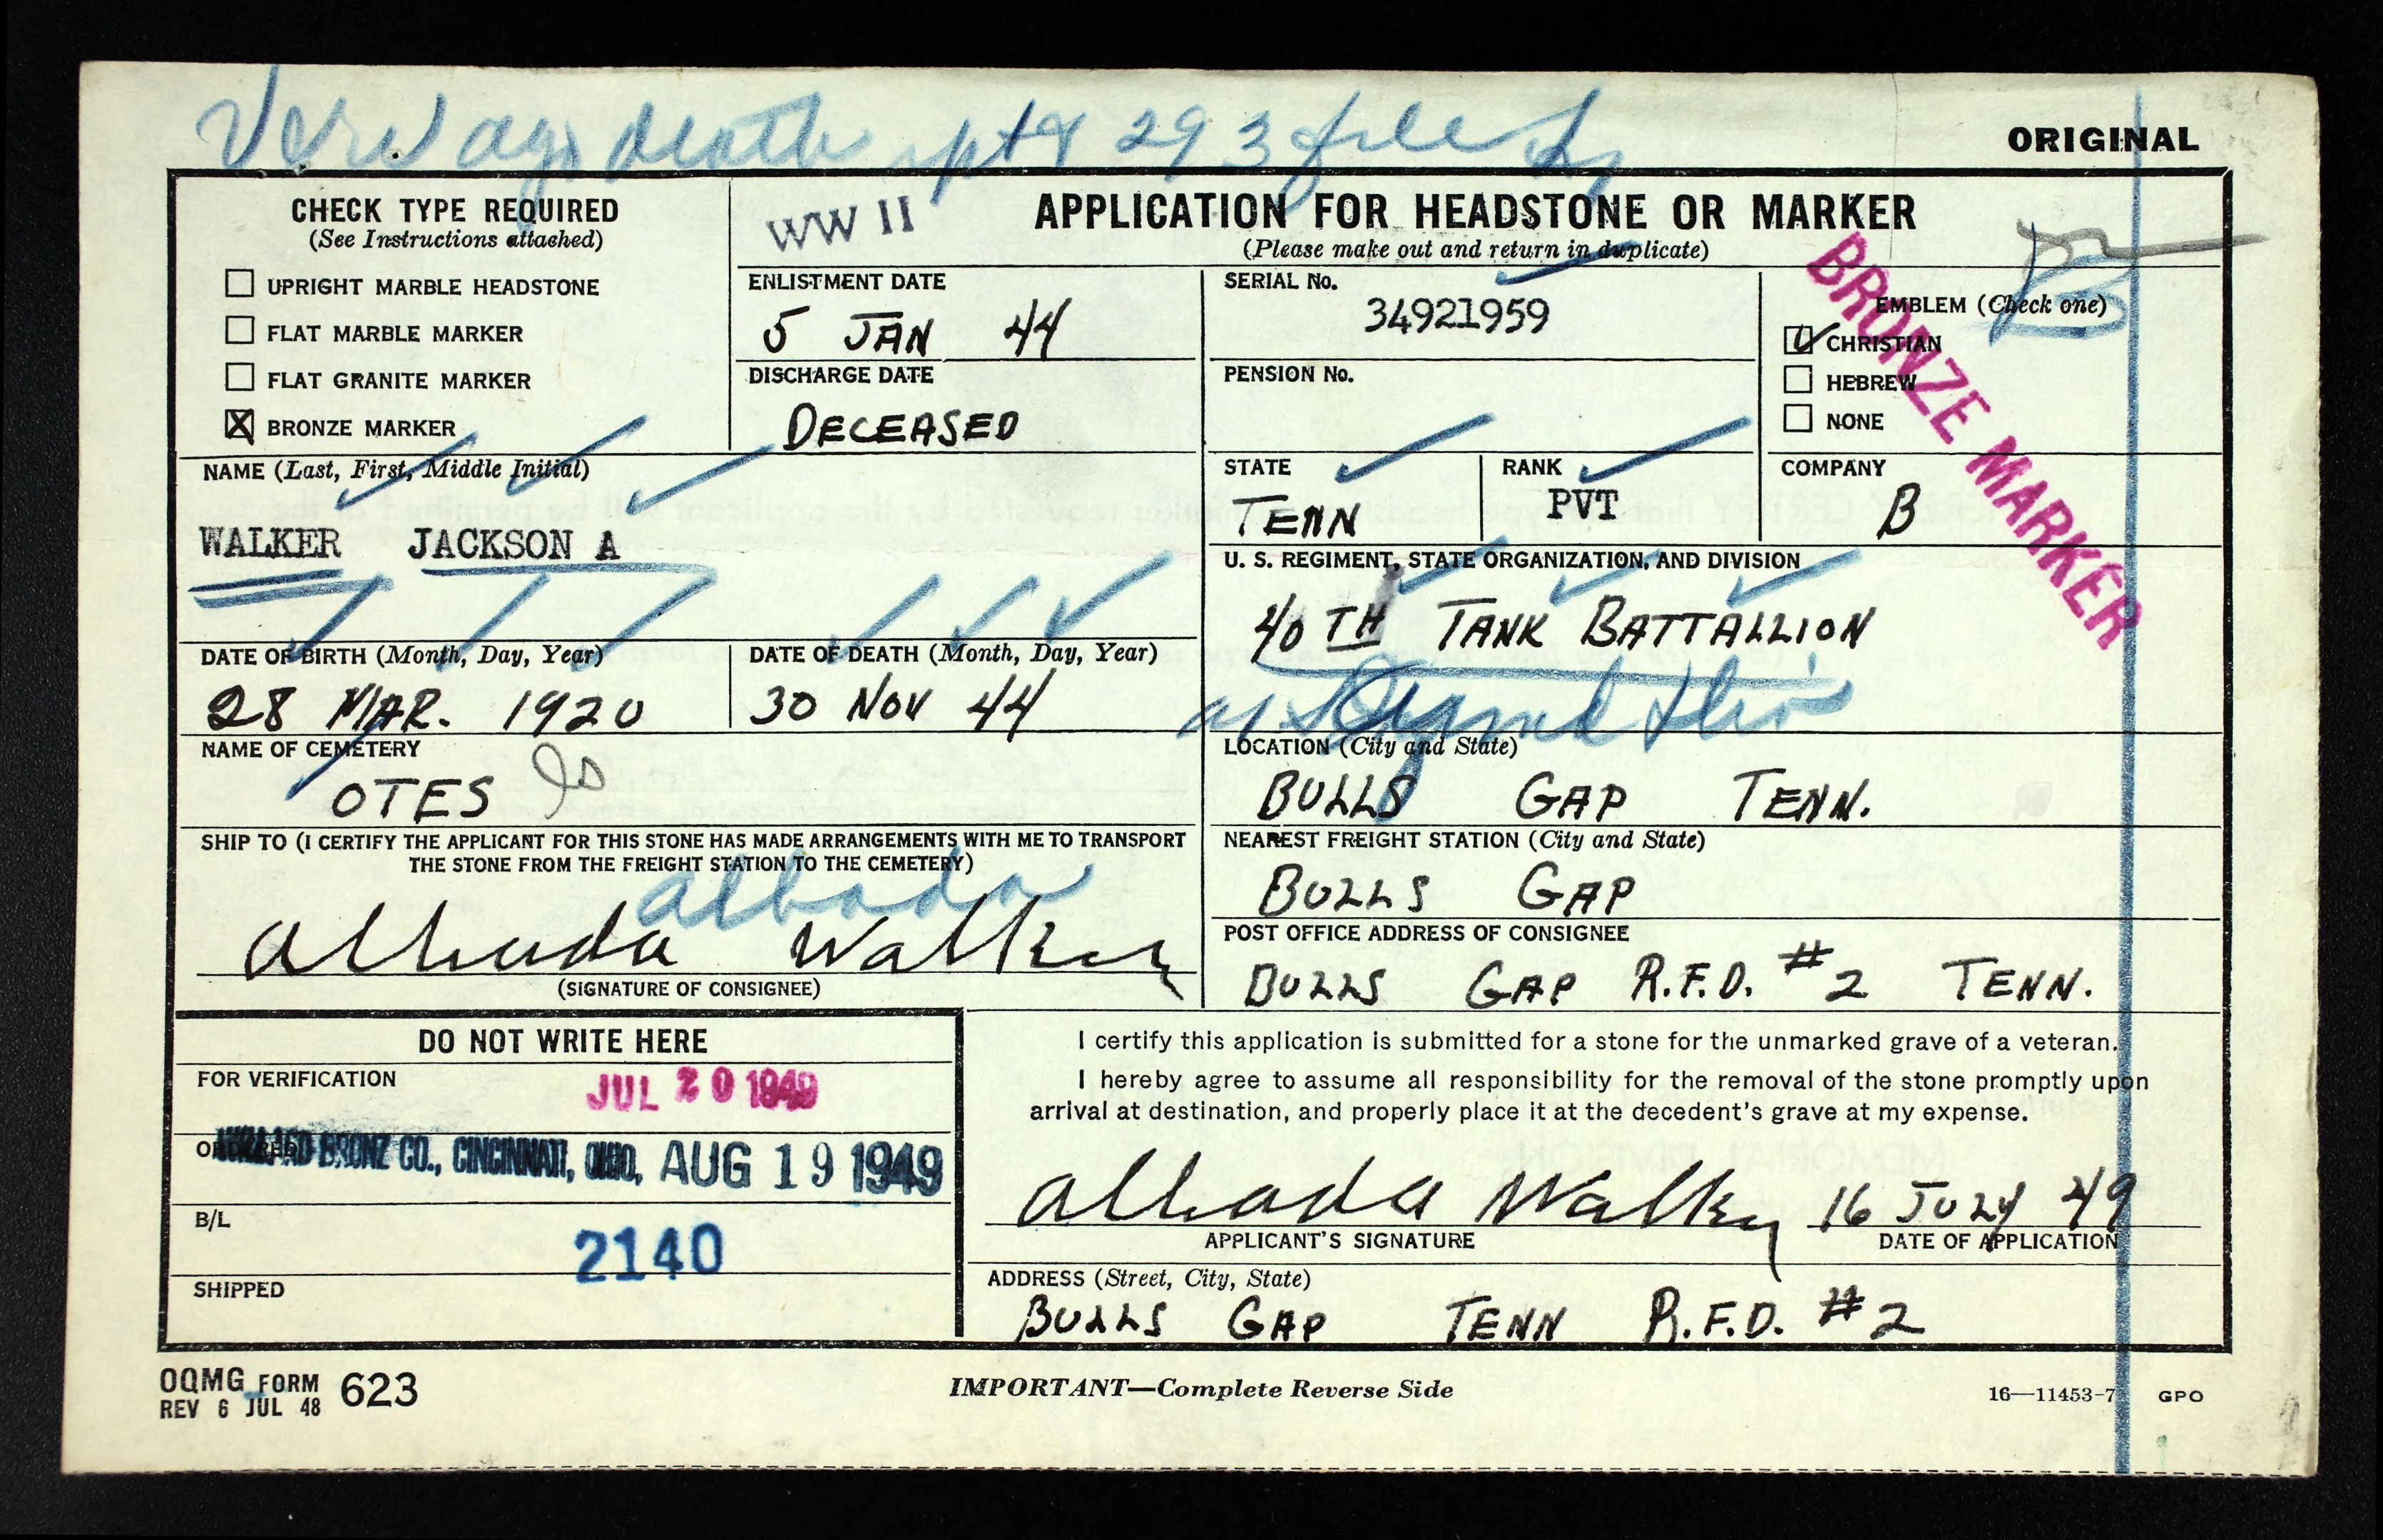 death 293 file
ORIGINAL
CHECK TYPE REQUIRED
(See Instructions attached)
UPRIGHT MARBLE HEADSTONE
FLAT MARBLE MARKER
FLAT GRANITE MARKER
BRONZE MARKER
WW II
APPLICATION FOR HEADSTONE OR MARKER
(Please make out and return in duplicate)
ENLISTMENT DATE
5 JAN 44
DISCHARGE DATE
DECEASED
SERIAL No.
34921959
PENSION No.
EMBLEM (Check one)
CHRISTIAN
HEBREW
NONE
BRONZE MARKER
NAME (Last, First, Middle Initial)
WALKER JACKSON A
STATE
TENN
RANK
PVT
COMPANY
B
U. S. REGIMENT, STATE ORGANIZATION, AND DIVISION
40TH TANK BATTALLION
DATE OF BIRTH (Month, Day, Year)
28 MAR. 1920
DATE OF DEATH (Month, Day, Year)
30 NOV 44
NAME OF CEMETERY
OTES
LOCATION (City and State)
BULLS GAP TENN.
SHIP TO (I CERTIFY THE APPLICANT FOR THIS STONE HAS MADE ARRANGEMENTS WITH ME TO TRANSPORT
THE STONE FROM THE FREIGHT STATION TO THE CEMETERY)
albada
Walker
(SIGNATURE OF CONSIGNEE)
NEAREST FREIGHT STATION (City and State)
BULLS GAP
POST OFFICE ADDRESS OF CONSIGNEE
BULLS GAP R.F.D. #2 TENN.
DO NOT WRITE HERE
FOR VERIFICATION
JUL 20 1949
ORDERED
BRONZ CO., CINCINNATI, OHIO, AUG 19 1949
B/L
2140
SHIPPED
I certify this application is submitted for a stone for the unmarked grave of a veteran.
I hereby agree to assume all responsibility for the removal of the stone promptly upon
arrival at destination, and properly place it at the decedent's grave at my expense.
Albada Walker 16 JULY 49
APPLICANT'S SIGNATURE
DATE OF APPLICATION
ADDRESS (Street, City, State)
BULLS GAP TENN R.F.D. #2
OQMG FORM 623
REV 6 JUL 48
IMPORTANT—Complete Reverse Side
16—11453-7 GPO